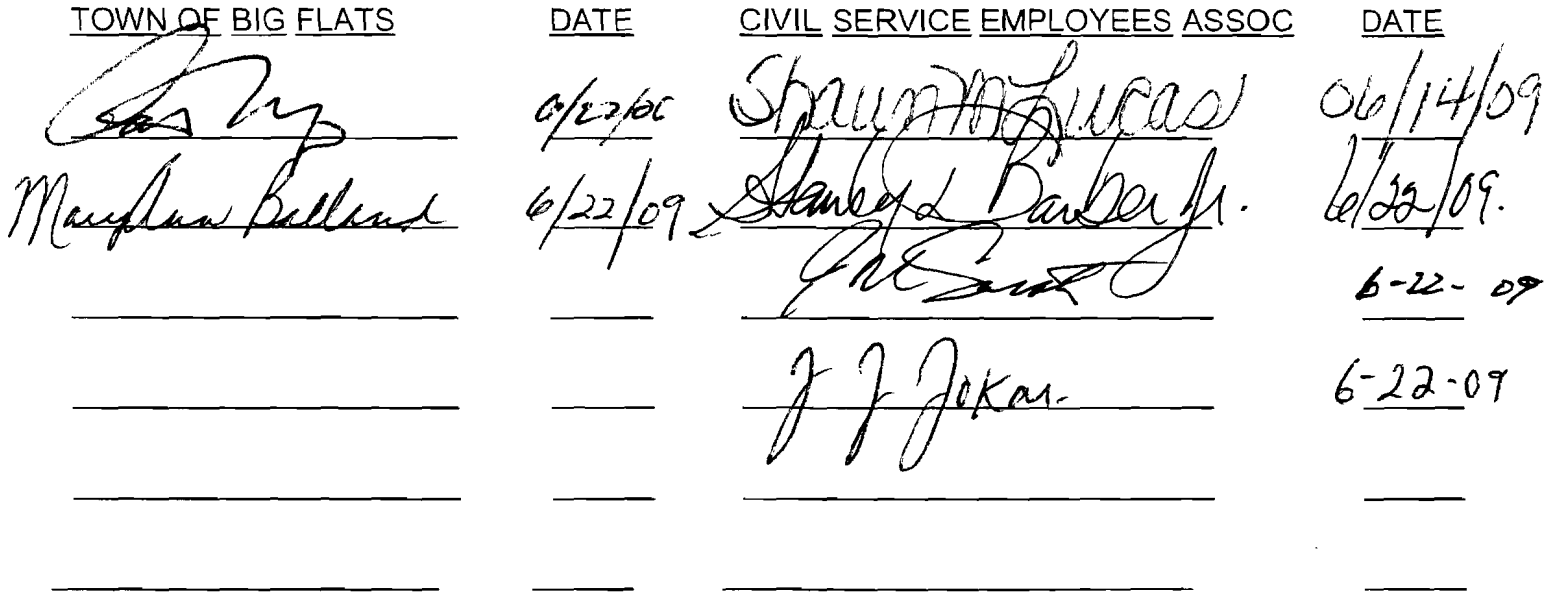 TOWN OF BIG FLATS DATE CIVIL SERVICE EMPLOYEES ASSOC DATE
Shaun M Lucas 06/14/09
Mary Ann Balland 6/22/09 Stanley L Barber Jr. 6/22/09.
6-22-09
J J Jokar 6-22-09